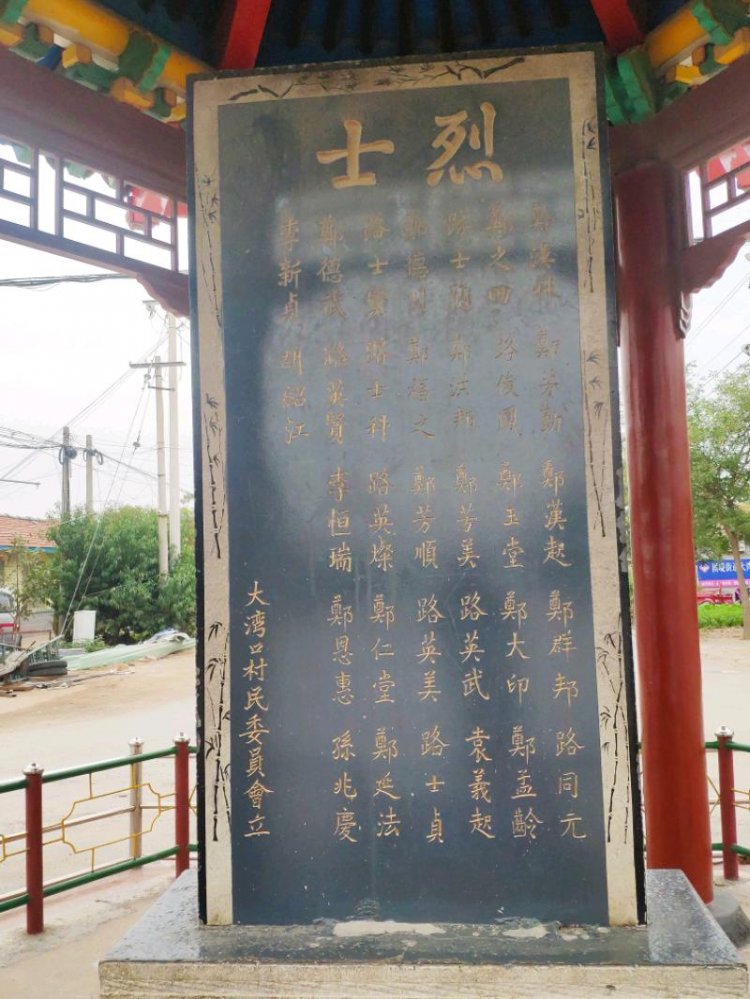 烈士
鄭芳勤 鄭漢起 鄭群邦 路同元
鄭之田 路俊國 鄭玉堂 鄭大印 鄭孟齡
路士 鄭洪邦 鄭芳美 路英武 袁義起
鄭德 鄭培之 鄭芳順 路英美 路士貞
路士 路士科 路英燦 鄭仁堂 鄭延法
鄭德武 路英賢 李恒瑞 鄭恩惠 孫兆慶
李新貞 胡紹江
大湾口村民委員會立